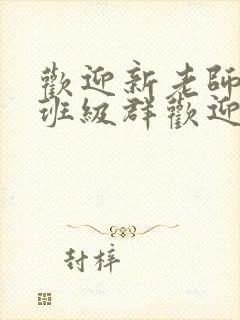 歡迎新老師
班級群歡迎
封梓